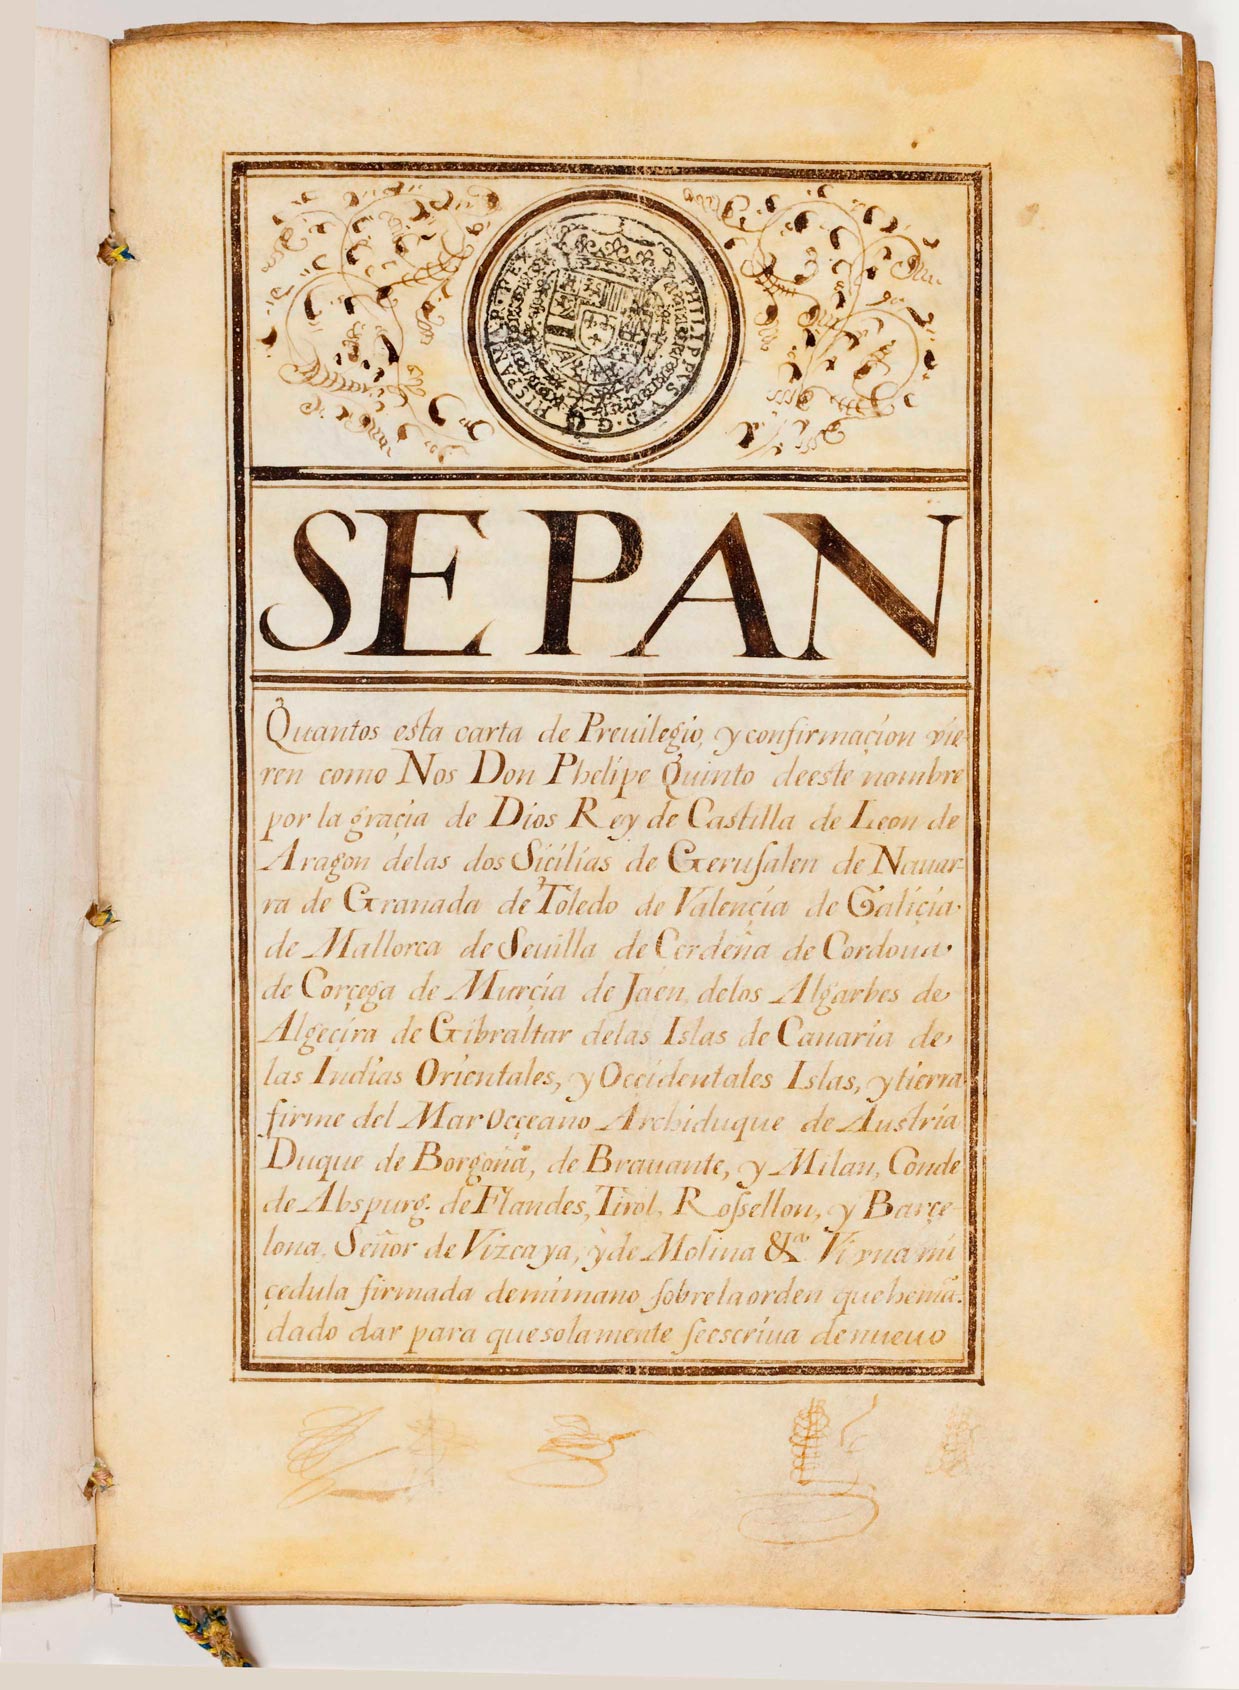 PHILIPPVS V D. G. HISPANIAR. REX
SEPAN
Quantos esta carta de Preuilegio, y confirmaçion vie
ren como Nos Don Phelipe Quinto deeste nombre
por la graçia de Dios Rey de Castilla de Leon de
Aragon delas dos Sicilias de Gerusalen de Nauar-
ra de Granada de Toledo de Valençia de Galiçia
de Mallorca de Seuilla de Cerdeña de Cordoua
de Corçega de Murçia de Jaen, delos Algarbes de
Algeçira de Gibraltar delas Islas de Canaria de
las Indias Orientales, y Occidentales Islas, y tierra
firme del Mar Occeano Archiduque de Austria
Duque de Borgoña, de Brauante, y Milan, Conde
de Abspurg. de Flandes, Tirol, Rossellon, y Barçe
lona, Señor de Vizcaya, y de Molina &a. Vi vna mi
çedula firmada demimano sobrelaorden quehemã
dado dar para quesolamente seescriua denueuo